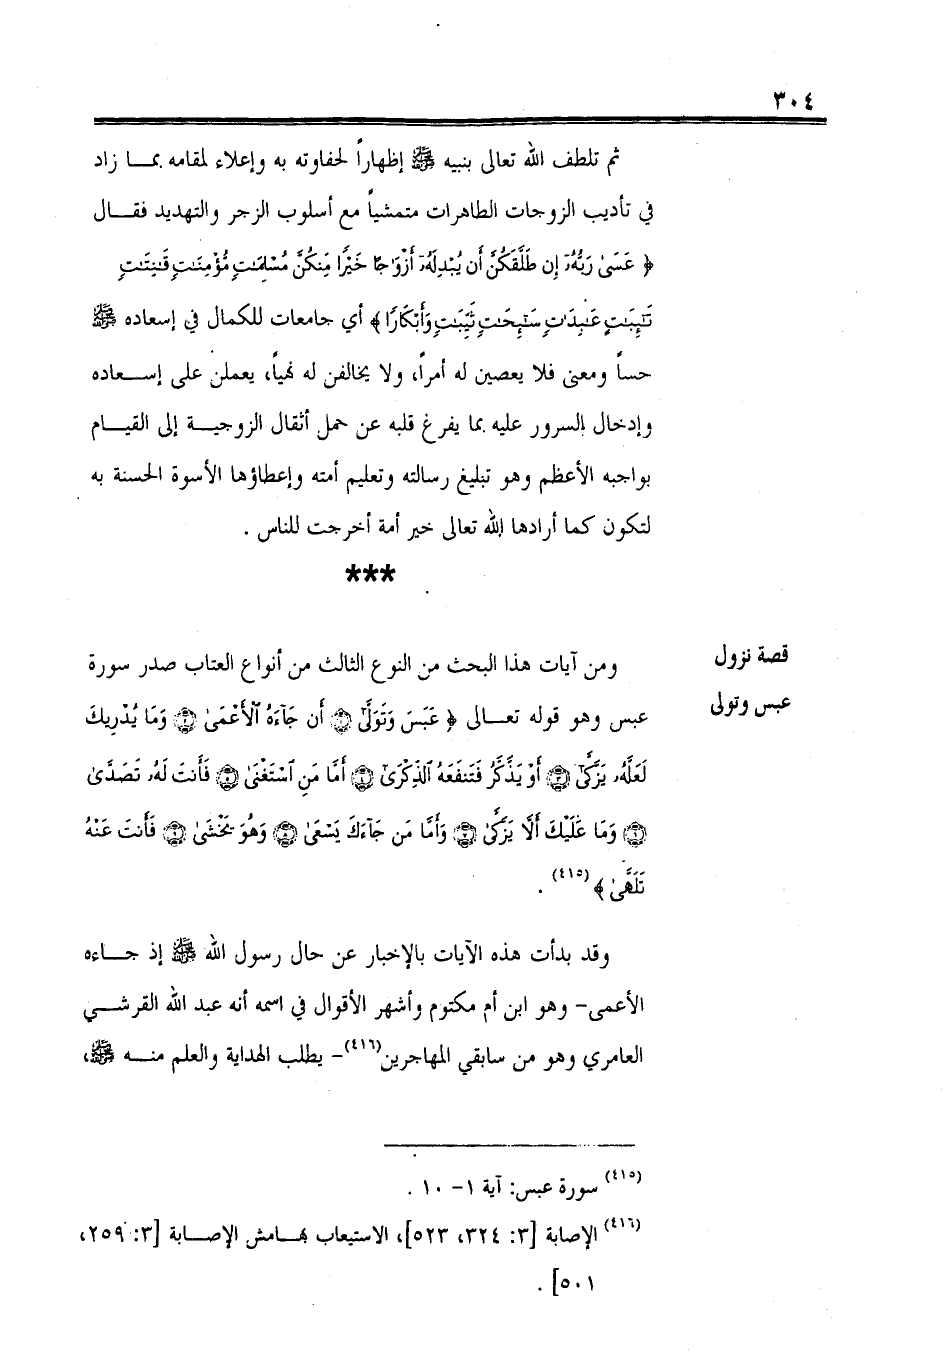 ٣٠٤
ثم تلطف الله تعالى بنبيه ﷺ إظهاراً لحفاوته به وإعلاء لمقامه بمـا زاد
في تأديب الزوجات الطاهرات متمشياً مع أسلوب الزجر والتهديد فقـال
﴿ عَسَىٰ رَبُّهُۥٓ إِن طَلَّقَكُنَّ أَن يُبْدِلَهُۥٓ أَزْوَٰجًا خَيْرًا مِّنكُنَّ مُسْلِمَٰتٍ مُّؤْمِنَٰتٍ قَٰنِتَٰتٍ
تَٰٓئِبَٰتٍ عَٰبِدَٰتٍ سَٰٓئِحَٰتٍ ثَيِّبَٰتٍ وَأَبْكَارًا ﴾ أي جامعات للكمال في إسعاده ﷺ
حساً ومعنى فلا يعصين له أمراً، ولا يخالفن له نهياً، يعملن على إسـعاده
وإدخال السرور عليه بما يفرغ قلبه عن حمل أثقال الزوجيـة إلى القيـام
بواجبه الأعظم وهو تبليغ رسالته وتعليم أمته وإعطاؤها الأسوة الحسنة به
لتكون كما أرادها الله تعالى خير أمة أخرجت للناس .
***
قصة نزول
عبس وتولى
ومن آيات هذا البحث من النوع الثالث من أنواع العتاب صدر سورة
عبس وهو قوله تعـالى ﴿ عَبَسَ وَتَوَلَّىٰٓ ۝١ أَن جَآءَهُ ٱلْأَعْمَىٰ ۝٢ وَمَا يُدْرِيكَ
لَعَلَّهُۥ يَزَّكَّىٰٓ ۝٣ أَوْ يَذَّكَّرُ فَتَنفَعَهُ ٱلذِّكْرَىٰٓ ۝٤ أَمَّا مَنِ ٱسْتَغْنَىٰ ۝٥ فَأَنتَ لَهُۥ تَصَدَّىٰ
۝٦ وَمَا عَلَيْكَ أَلَّا يَزَّكَّىٰ ۝٧ وَأَمَّا مَن جَآءَكَ يَسْعَىٰ ۝٨ وَهُوَ يَخْشَىٰ ۝٩ فَأَنتَ عَنْهُ
تَلَهَّىٰ ﴾ (٤١٥) .
وقد بدأت هذه الآيات بالإخبار عن حال رسول الله ﷺ إذ جـاءه
الأعمى- وهو ابن أم مكتوم وأشهر الأقوال في اسمه أنه عبد الله القرشـي
العامري وهو من سابقي المهاجرين(٤١٦)- يطلب الهداية والعلم منـه ﷺ،
(٤١٥) سورة عبس: آية ١- ١٠ .
(٤١٦) الإصابة [٣: ٣٢٤، ٥٢٣]، الاستيعاب بهـامش الإصـابة [٣: ٢٥٩،
٥٠١] .